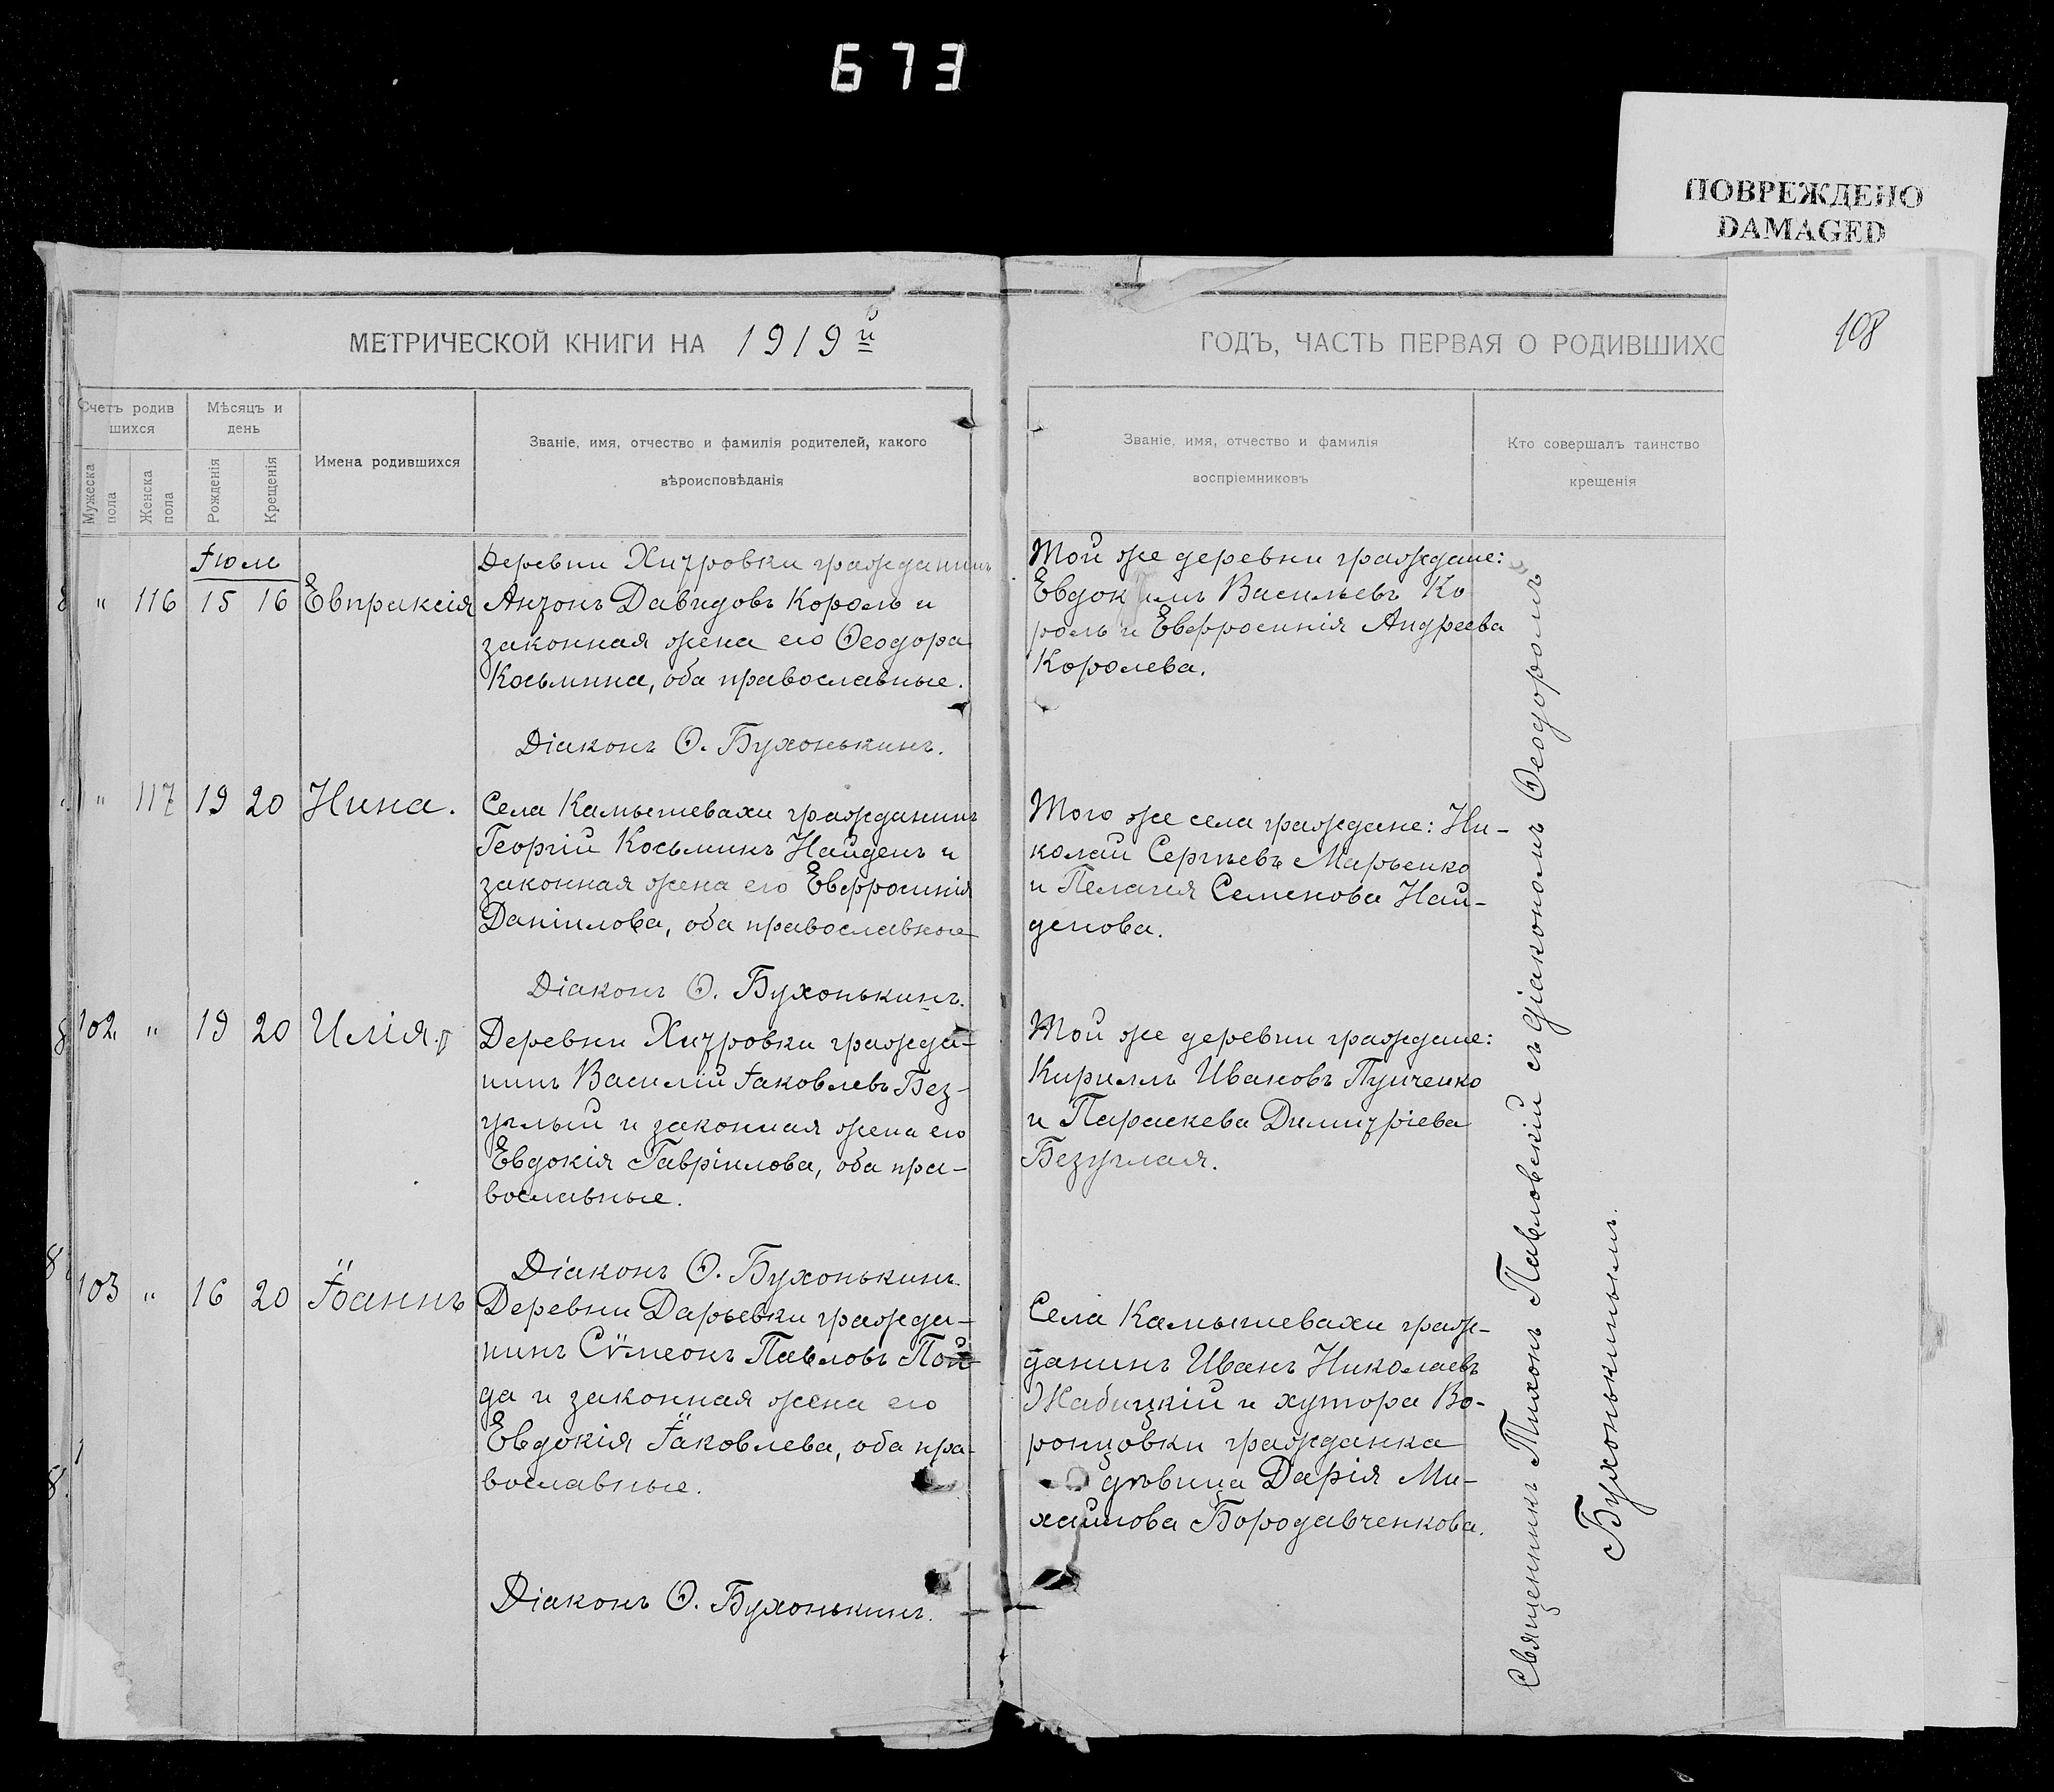 673
ПОВРЕЖДЕНО
DAMAGED
108
МЕТРИЧЕСКОЙ КНИГИ НА 1919й
Счетъ родив
шихся
Мѣсяцъ и
день
Мужеска
пола
Женска
пола
Рожденія
Крещенія
Имена родившихся
Званіе, имя, отчество и фамилія родителей, какого
вѣроисповѣданія
Іюль
" 116 15 16 Евпраксія
Деревни Хитровки гражданинъ
Антонъ Давидовъ Король и
законная жена его Ѳеодора
Косьмина, оба православные.
Діаконъ Ѳ. Бухонькинъ.
" 117 19 20 Нина.
Села Камышевахи гражданинъ
Георгій Косьминъ Найденъ и
законная жена его Евфросинія
Даніилова, оба православные
Діаконъ Ѳ. Бухонькинъ.
102 " 19 20 Илія.
Деревни Хитровки гражда-
нинъ Василій Іаковлевъ Без-
углый и законная жена его
Евдокія Гавріилова, оба пра-
вославные.
Діаконъ Ѳ. Бухонькинъ.
103 " 16 20 Іоаннъ
Деревни Дарьевки гражда-
нинъ Сѵмеонъ Павловъ Пой-
да и законная жена его
Евдокія Іаковлева, оба пра-
вославные.
Діаконъ Ѳ. Бухонькинъ.
ГОДЪ, ЧАСТЬ ПЕРВАЯ О РОДИВШИХС
Званіе, имя, отчество и фамилія
воспріемниковъ
Кто совершалъ таинство
крещенія
Той же деревни граждане:
Евдокимъ Васильевъ Ко
роль и Евфросинія Андреева
Королева.
Того же села граждане: Ни-
колай Сергѣевъ Марьенко
и Пелагия Семенова Най-
денова.
Той же деревни граждане:
Кириллъ Ивановъ
и Параскева Димитріева
Безуглая.
Села Камышевахи граж-
данинъ Иванъ Николаевъ
Жабицкій и хутора Во-
ронцовки гражданка
дѣвица Дарія Ми-
хайлова Бородавченкова.
Священникъ Тихонъ Павловскій съ діакономъ Ѳеодоромъ
Бухонькинымъ.